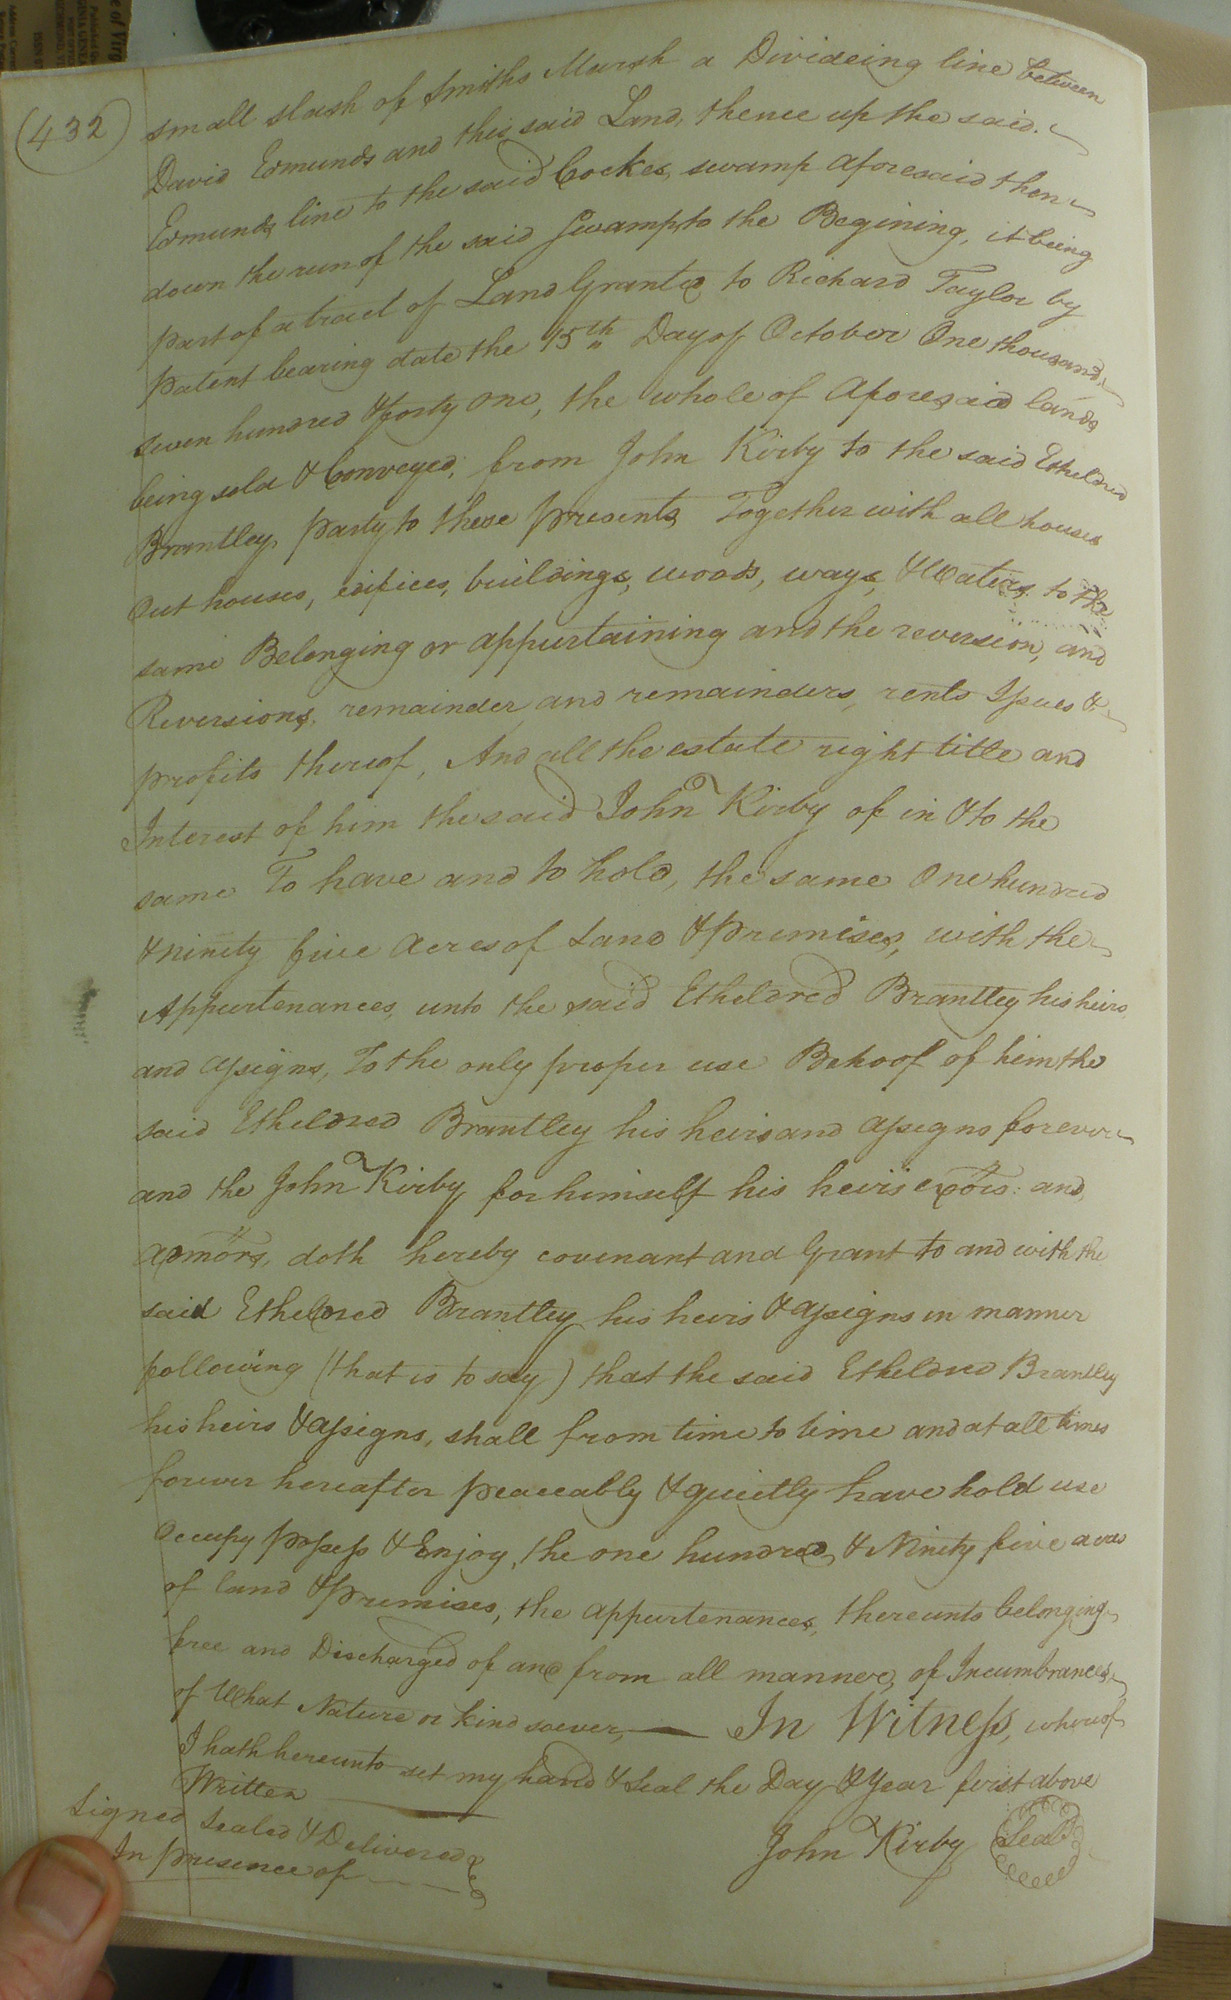 (432)
small slash of Smiths Marsh a Divideing line between
David Edmunds and this said Land, thence up the said
Edmunds line to the said Cockes, swamp aforesaid then
down the run of the said Swamp, to the Begining, it being
part of a tract of Land Granted to Richard Taylor by
patent bearing date the 15th Day of October One thousand
seven hundred & forty one, the whole of aforesaid lands
being sold & Conveyed, from John Kirby to the said Etheldred
Brantley, party to these presents Together with all houses
Out houses, edifices, buildings, woods, ways, & Waters to the
same Belonging or appurtaining and the reversion, and
Reversions, remainder, and remainders, rents Issues &
profits thereof, And all the estate right title and
Interest of him the said John Kirby of in & to the
same To have and to hold, the same One hundred
& ninety five acres of Land & premises, with the
Appurtenances, unto the said Etheldred Brantley his heirs
and assigns, To the only proper use Behoof of him the
said Etheldred Brantley his heirs and assigns forever
and the John Kirby for himself his heirs exors: and
admors, doth hereby covenant and Grant to and with the
said Etheldred Brantley his heirs & assigns in manner
following (that is to say) that the said Etheldred Brantley
his heirs & assigns, shall from time to time and at all times
forever hereafter peaceably & quietly have hold use
Occupy possess & Enjoy, the one hundred, & Ninety five acres
of land & premises, the appurtenances, thereunto belonging,
free and Discharged of and from all manner, of Incumbrances,
of What Nature or kind soever, — In Witness, whereof
I hath hereunto set my hand & Seal the Day & Year first above
Written
Signed Sealed & Delivered
In presence of
John Kirby Seal